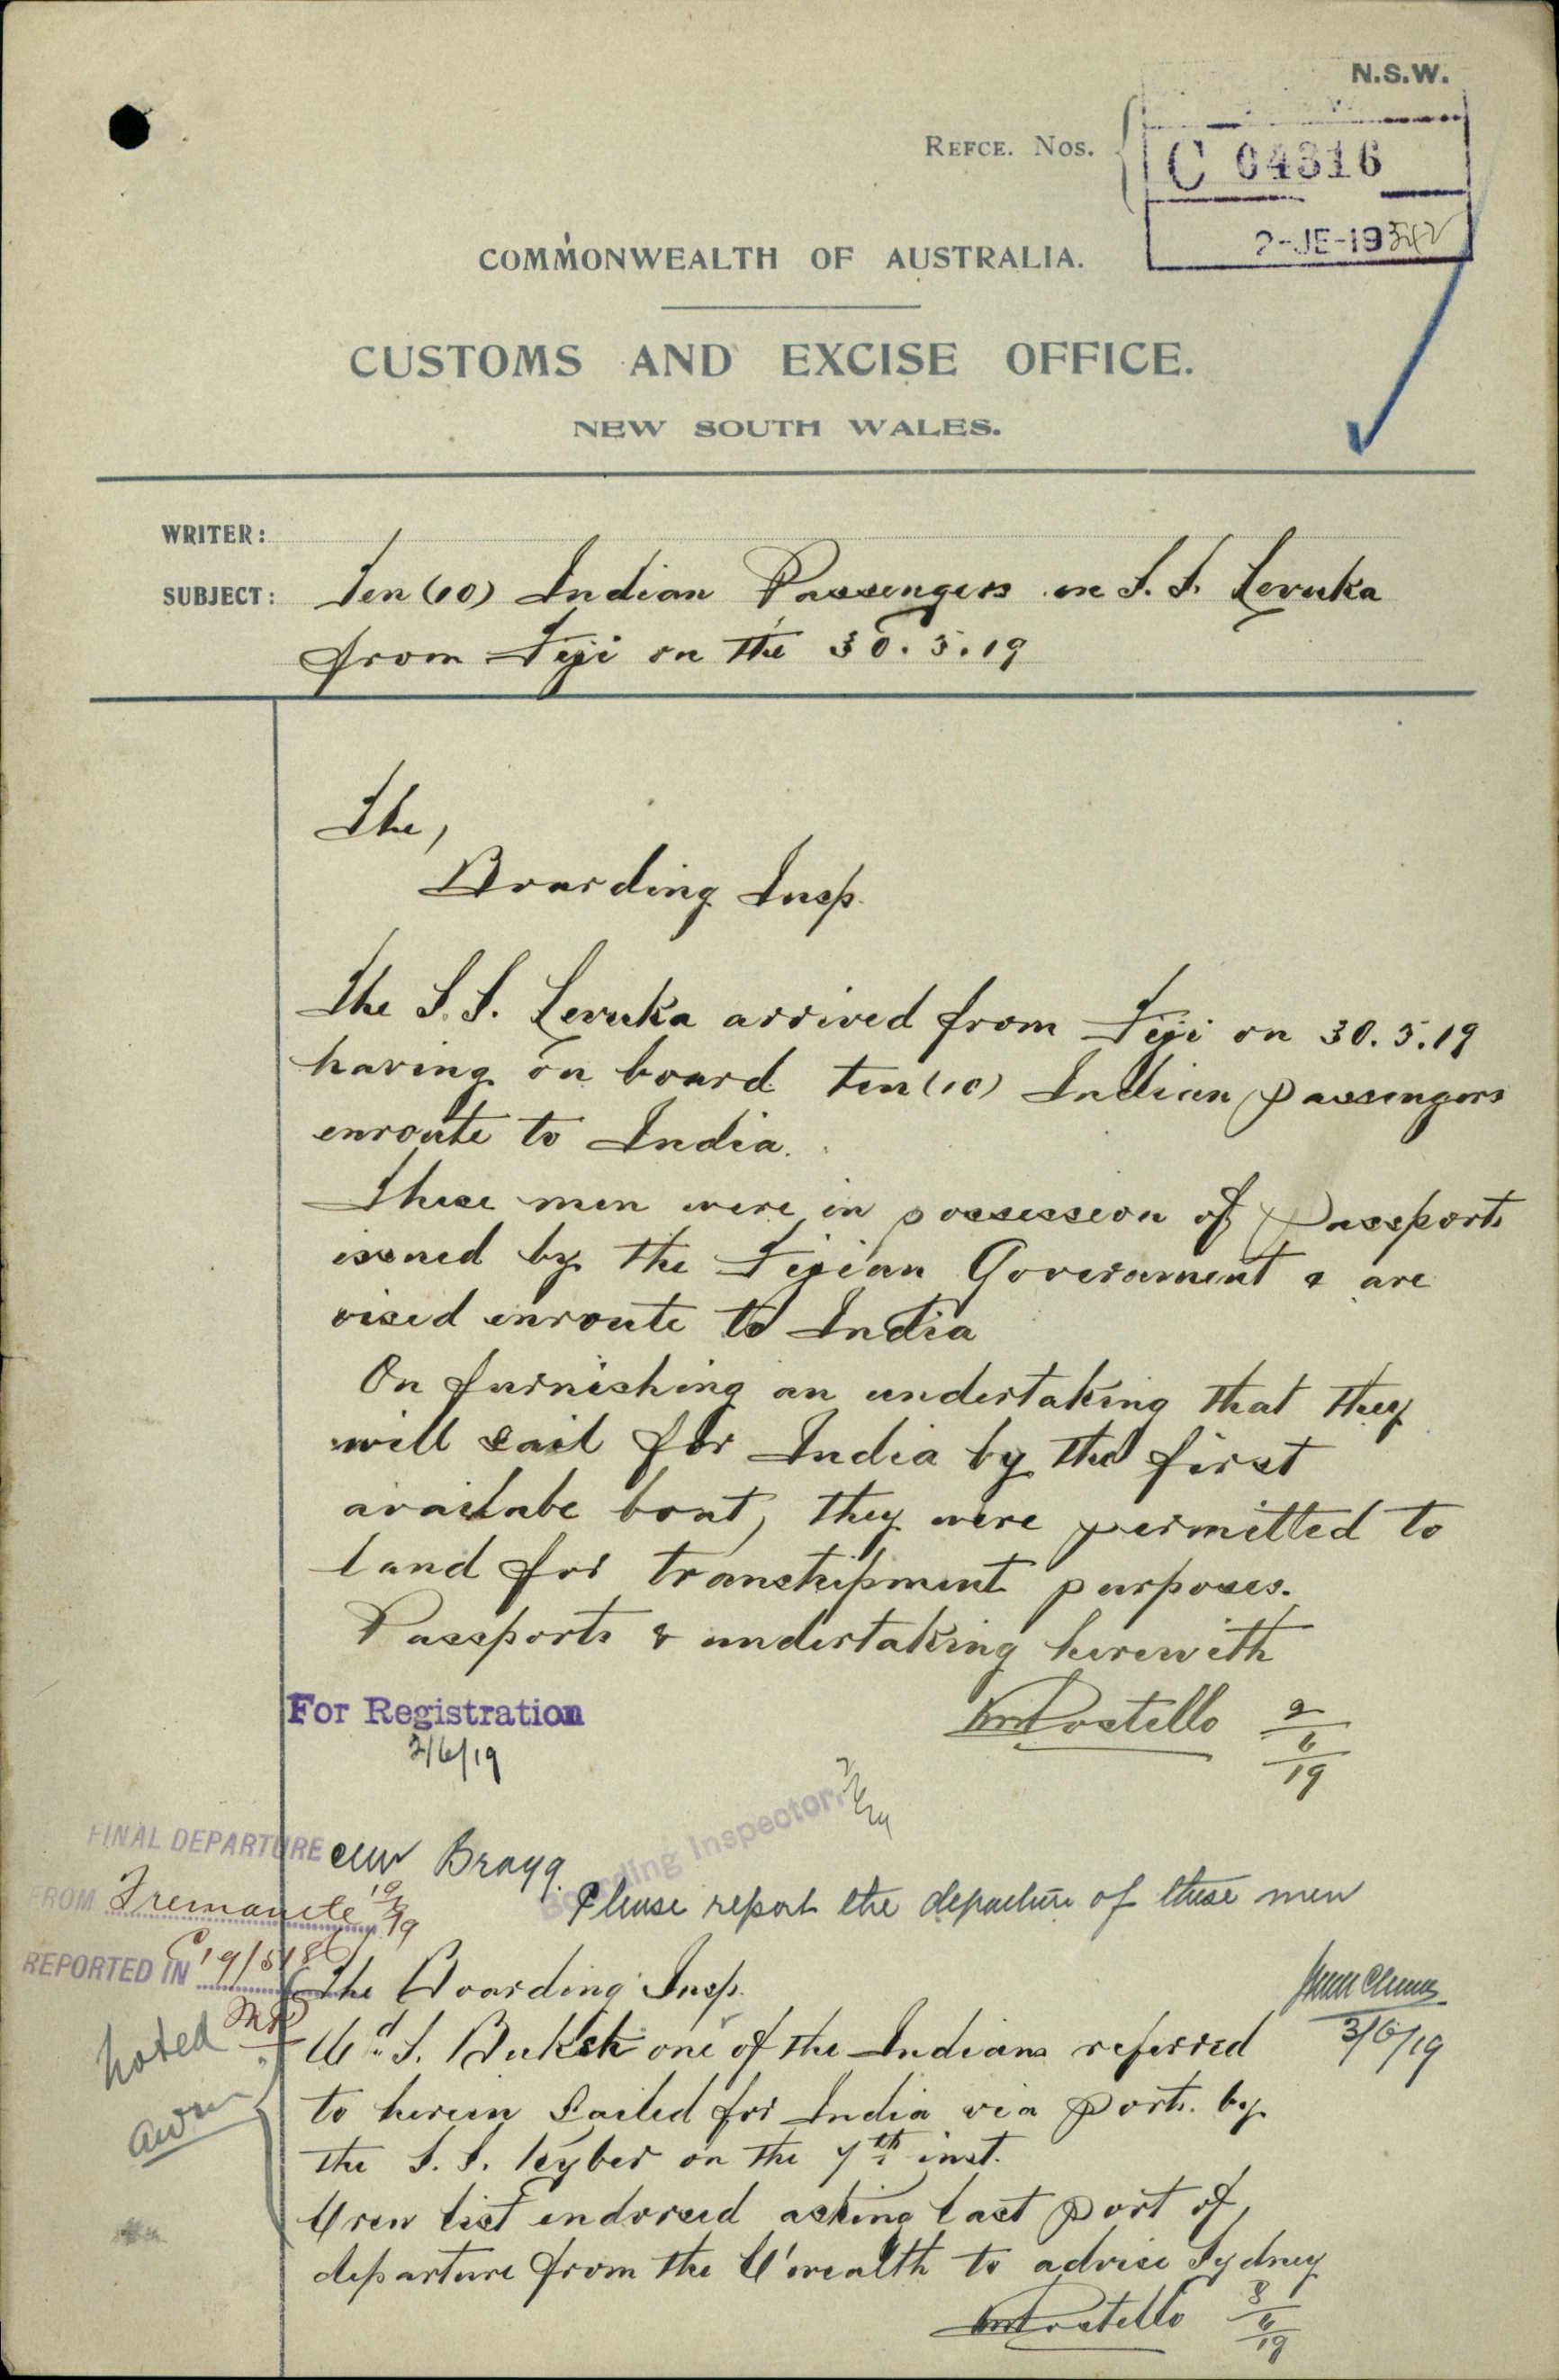 N.S.W.
REFCE. NOS.
C 04316
2-JE-19
COMMONWEALTH OF AUSTRALIA.
CUSTOMS AND EXCISE OFFICE.
NEW SOUTH WALES.
WRITER:
SUBJECT: Ten (10) Indian Passengers on S.S. Levuka
from Fiji on the 30.5.19
The,
Boarding Insp.
The S.S. Levuka arrived from Fiji on 30.5.19
having on board ten (10) Indian passengers
enroute to India.
These men were in possession of Passports
issued by the Fijian Government & are
vised enroute to India
On furnishing an undertaking that they
will sail for India by the first
availabe boat, they were permitted to
land for transhipment purposes.
Passports & undertaking herewith
Costello 2/6/19
For Registration
2/6/19
Boarding Inspector.
FINAL DEPARTURE
FROM Fremantle
REPORTED IN
Bragg
Please report the departure of these men
3/6/19
noted
The Boarding Insp.
S. Buksh one of the Indians referred
to herein sailed for India via ports by
the S.S. Kyber on the 7th inst.
Crew list endorsed asking last port of
departure from the C'wealth to advise Sydney
Costello 8/6/19